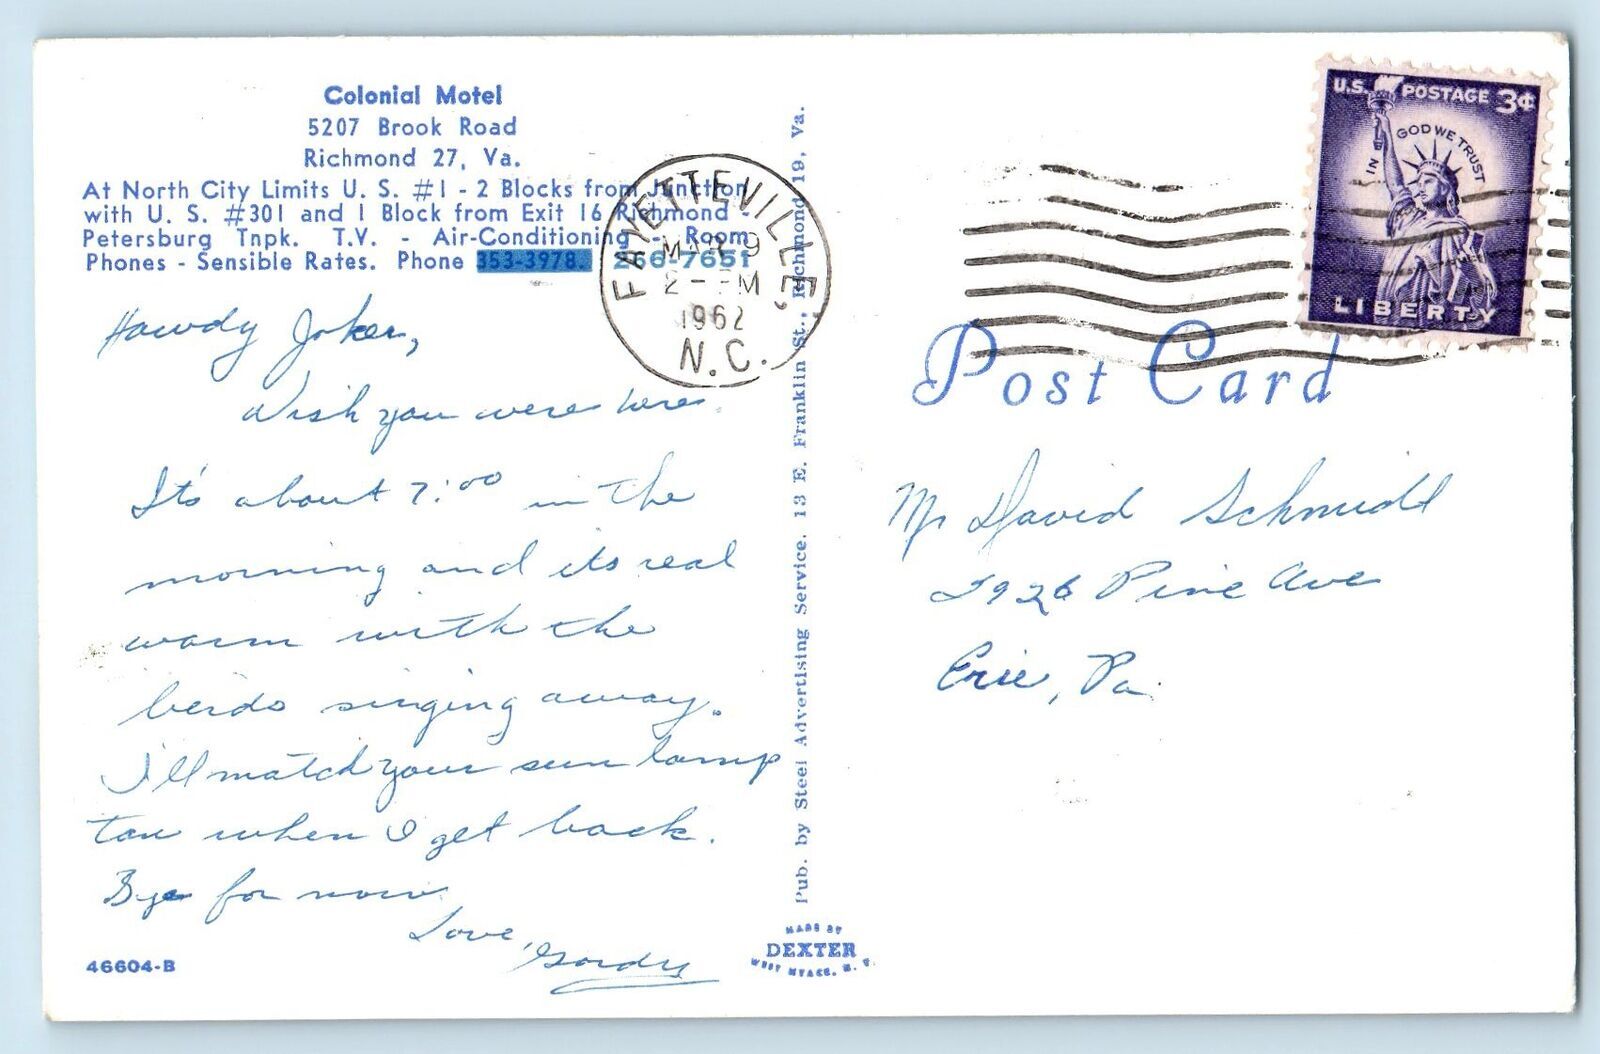 Colonial Motel
5207 Brook Road
Richmond 27, Va.
At North City Limits U. S. #1 - 2 Blocks from Junction
with U. S. #301 and 1 Block from Exit 16 Richmond -
Petersburg Tnpk. T.V. - Air-Conditioning - Room
Phones - Sensible Rates. Phone 353-3978. 266-7651
Howdy Joker,
Wish you were here.
It's about 7:00 in the
morning and its real
warm with the
berds singing away.
I'll match your sun lamp
tan when I get back.
Bye for now
Love,
Gordy
46604-B
FAYETTEVILLE,
MAR 9
2- PM
1962
N.C.
Pub. by Steel Advertising Service, 13 E. Franklin St., Richmond 19, Va.
MADE BY
DEXTER
WEST NYACK, N. Y.
U.S. POSTAGE 3¢
IN GOD WE TRUST
LIBERTY
Post Card
Mr David Schmidt
2926 Pine Ave
Erie, Pa.